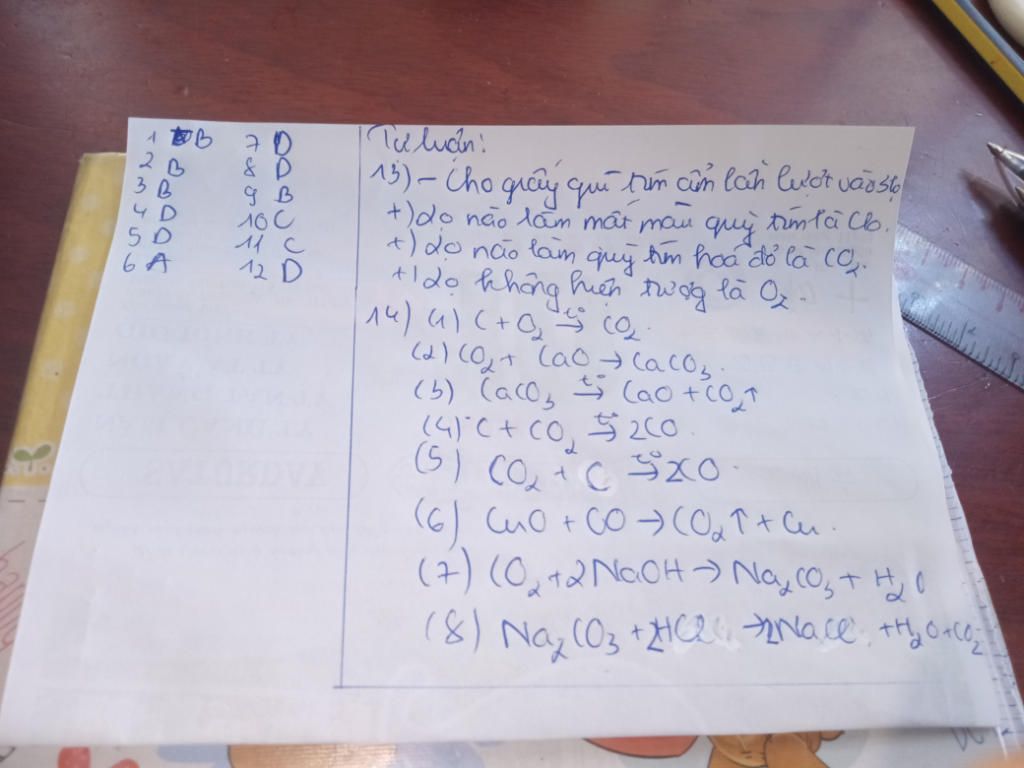 1 B
2 B
3 B
4 D
5 D
6 A
7 D
8 D
9 B
10 C
11 C
12 D
Tự luận:
13) - Cho giấy quì tím ẩm lần lượt vào 3 lọ
+) lọ nào làm mất màu quỳ tím là Clo.
+) lọ nào làm quỳ tím hoá đỏ là CO₂.
+) lọ không hiện tượng là O₂.
14) (1) C + O₂ →(t°) CO₂.
(2) CO₂ + CaO → CaCO₃.
(3) CaCO₃ →(t°) CaO + CO₂↑
(4) C + CO₂ →(t°) 2CO.
(5) CO₂ + C →(t°) 2CO.
(6) CuO + CO → CO₂↑ + Cu.
(7) CO₂ + 2NaOH → Na₂CO₃ + H₂O
(8) Na₂CO₃ + 2HCl → 2NaCl + H₂O + CO₂